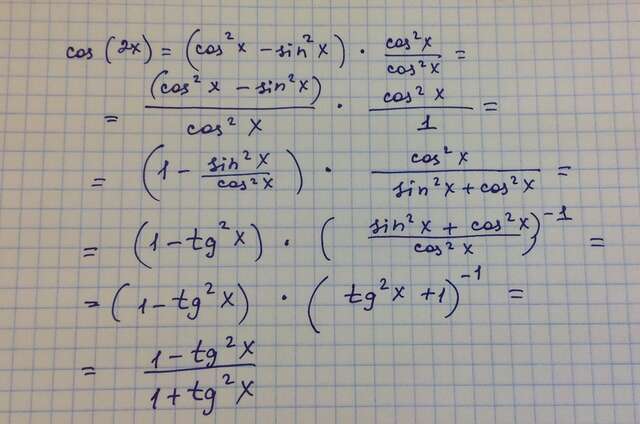 cos (2x) = (cos²x − sin²x) · cos²x / cos²x =
= (cos²x − sin²x) / cos²x · cos²x / 1 =
= (1 − sin²x / cos²x) · cos²x / sin²x + cos²x =
= (1 − tg²x) · (sin²x + cos²x / cos²x)⁻¹ =
= (1 − tg²x) · (tg²x + 1)⁻¹ =
= 1 − tg²x / 1 + tg²x